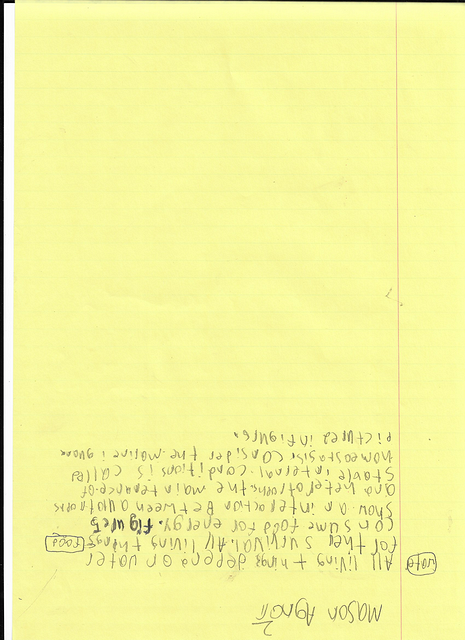 Mason Agnoli
2
All living things depend on water
for their survival. All living things
consume food for energy. Figure 5
Show an interaction Between autotrophs
and heterotrophs. the maintenance of
Stable internal conditions is called
homeostasis. Consider the marine iguana
pictured in figure
food